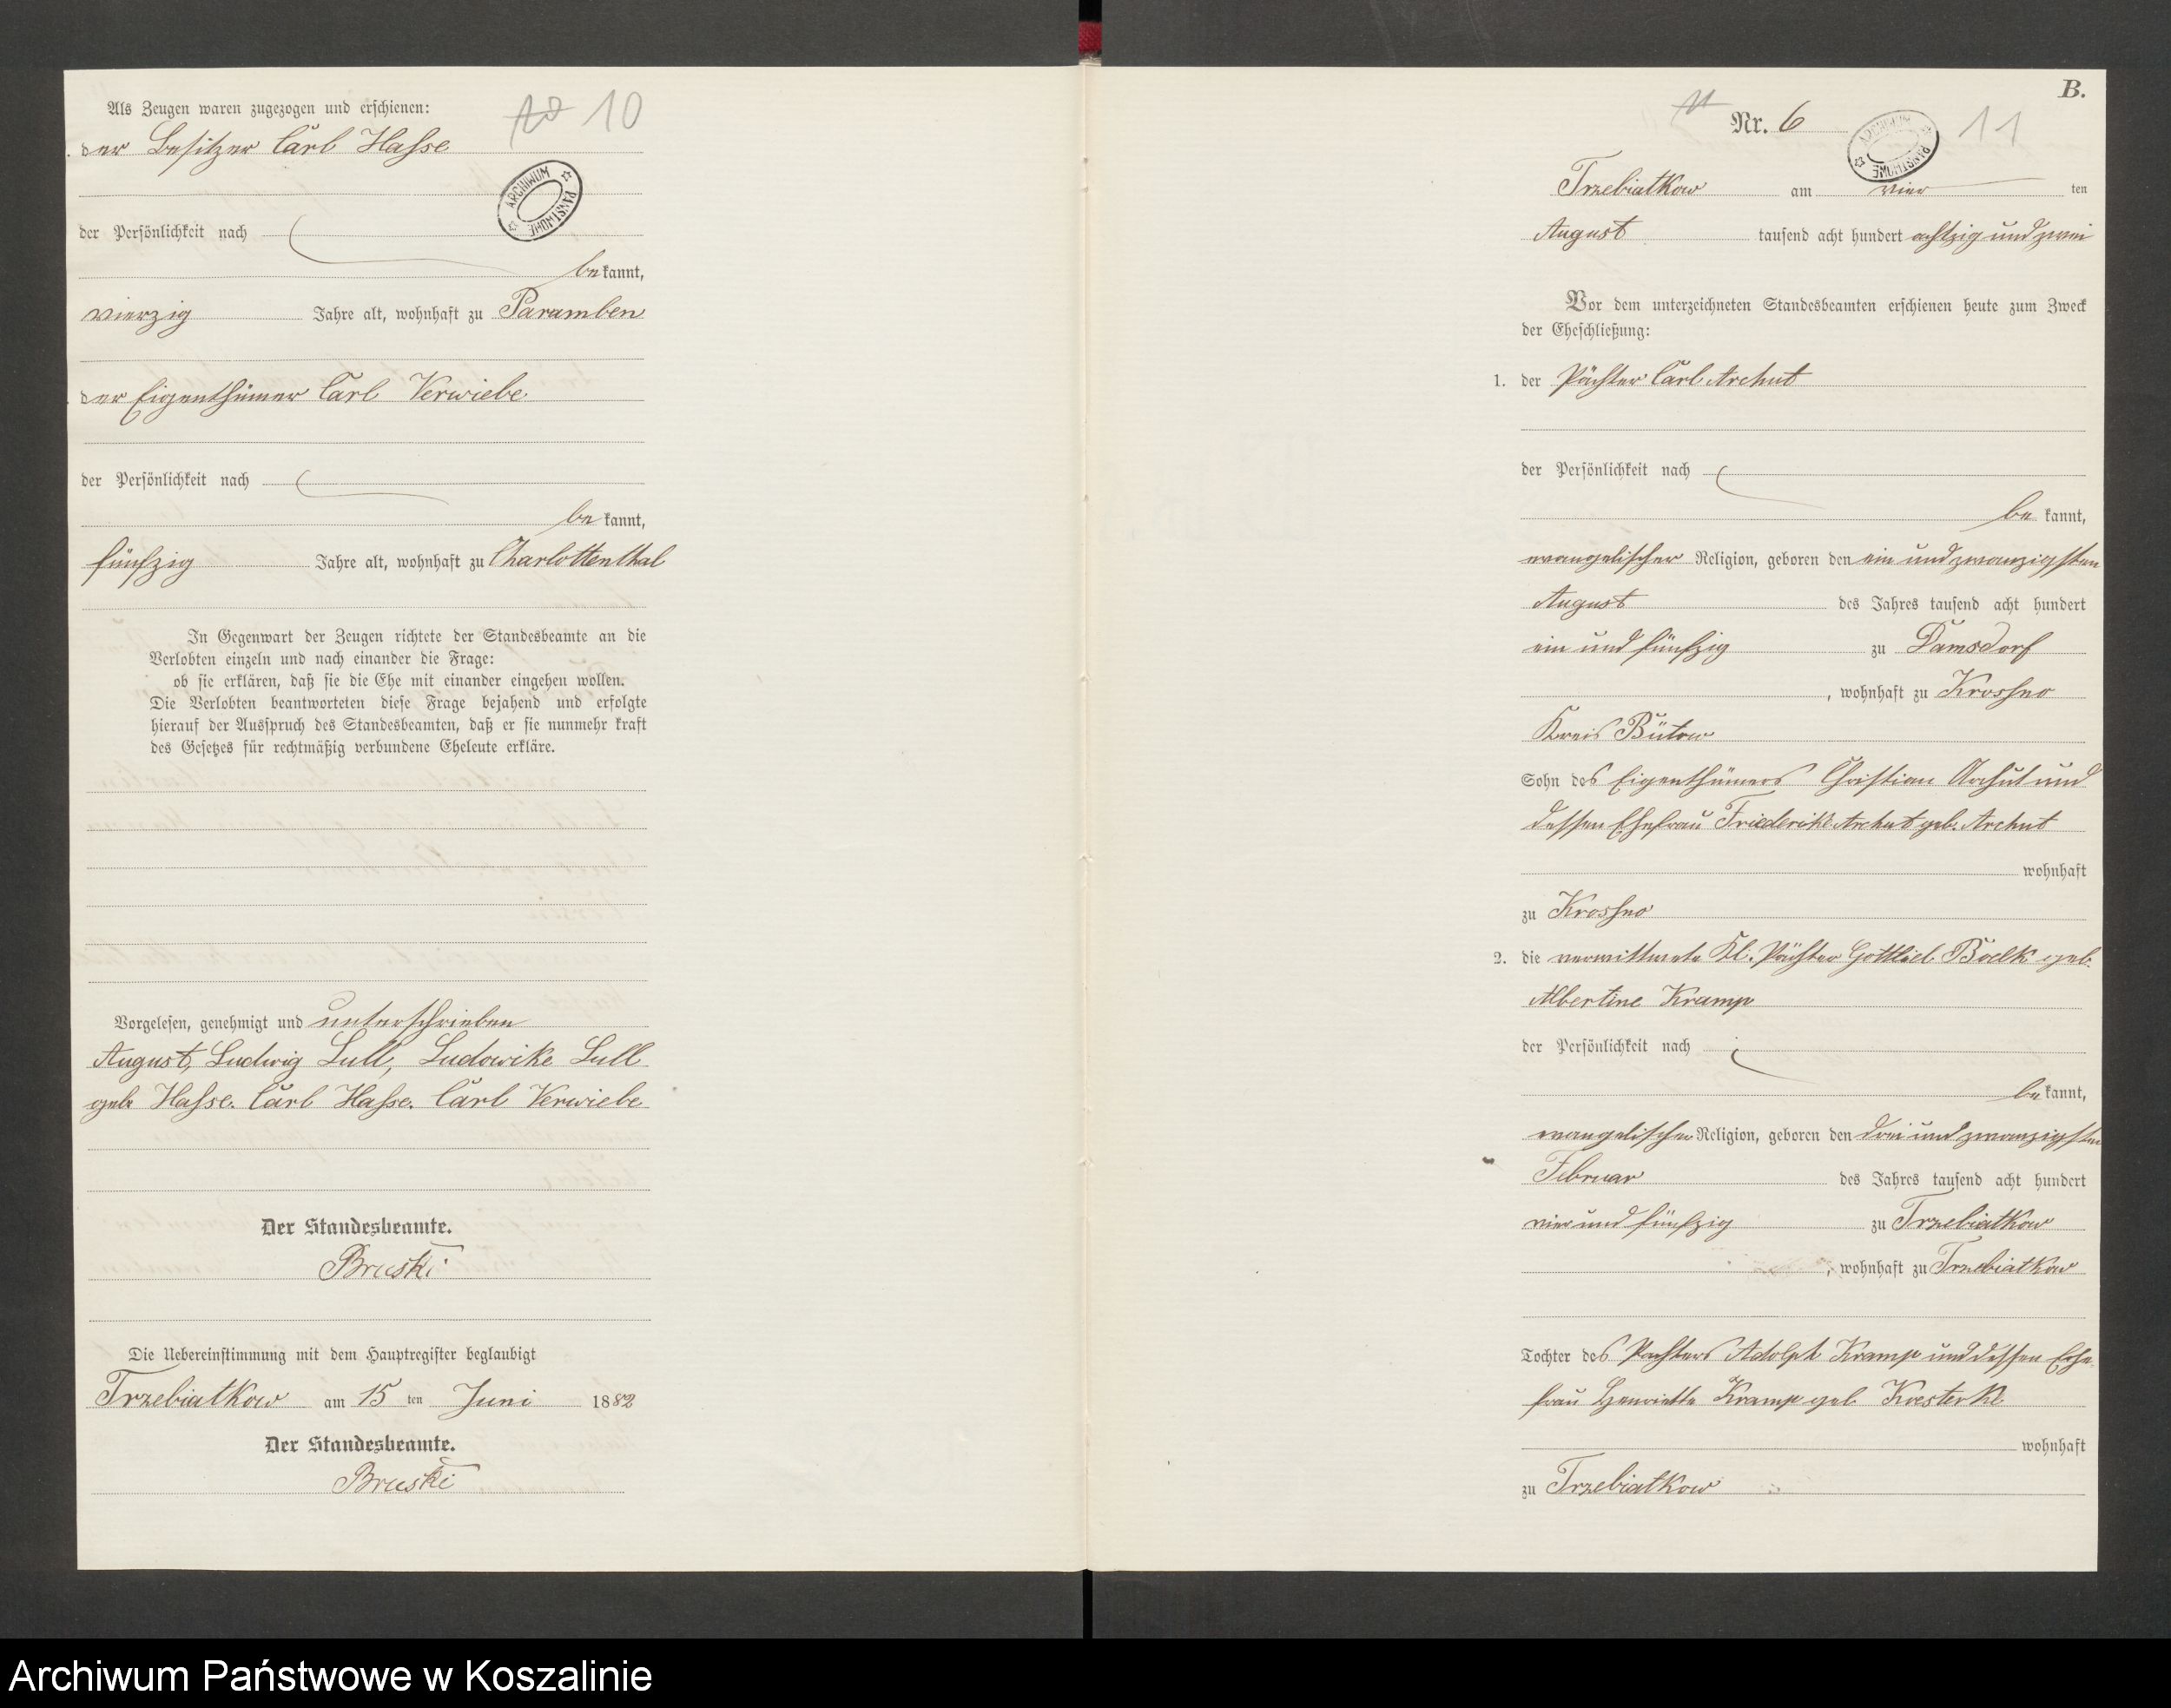 Als Zeugen waren zugezogen und erschienen:
10 10
der Besitzer Carl Hasse
ARCHIWUM PAŃSTWOWE
der Persönlichkeit nach
bekannt,
vierzig Jahre alt, wohnhaft zu Paramben
der Eigenthümer Carl Verwiebe
der Persönlichkeit nach
bekannt,
fünfzig Jahre alt, wohnhaft zu Charlottenthal
In Gegenwart der Zeugen richtete der Standesbeamte an die
Verlobten einzeln und nach einander die Frage:
ob sie erklären, daß sie die Ehe mit einander eingehen wollen.
Die Verlobten beantworteten diese Frage bejahend und erfolgte
hierauf der Ausspruch des Standesbeamten, daß er sie nunmehr kraft
des Gesetzes für rechtmäßig verbundene Eheleute erkläre.
Vorgelesen, genehmigt und unterschrieben
August, Ludwig Lull, Ludowike Lull
geb Hasse. Carl Hasse. Carl Verwiebe
Der Standesbeamte.
Bruski
Die Uebereinstimmung mit dem Hauptregister beglaubigt
Trzebiatkow am 15 ten Juni 1882
Der Standesbeamte.
Bruski
B.
11 Nr. 6 11
ARCHIWUM PAŃSTWOWE
Trzebiatkow am vier ten
August tausend acht hundert achtzig und zwei
Vor dem unterzeichneten Standesbeamten erschienen heute zum Zweck
der Eheschließung:
1. der Pächter Carl Archut
der Persönlichkeit nach
bekannt,
evangelischer Religion, geboren den ein und zwanzigsten
August des Jahres tausend acht hundert
ein und fünfzig zu Damsdorf
, wohnhaft zu Krossno
Kreis Bütow
Sohn des Eigenthümers Christian Archut und
dessen Ehefrau Friederike Archut geb. Archut
wohnhaft
zu Krossno
2. die verwittwete Kl. Pächter Gottlieb Boelk geb.
Albertine Kramp
der Persönlichkeit nach
bekannt,
evangelischer Religion, geboren den drei und zwanzigsten
Februar des Jahres tausend acht hundert
vier und fünfzig zu Trzebiatkow
, wohnhaft zu Trzebiatkow
Tochter des Pachters Adolph Kramp und dessen Ehe
frau Henriette Kramp geb. Koesterke
wohnhaft
zu Trzebiatkow
Archiwum Państwowe w Koszalinie